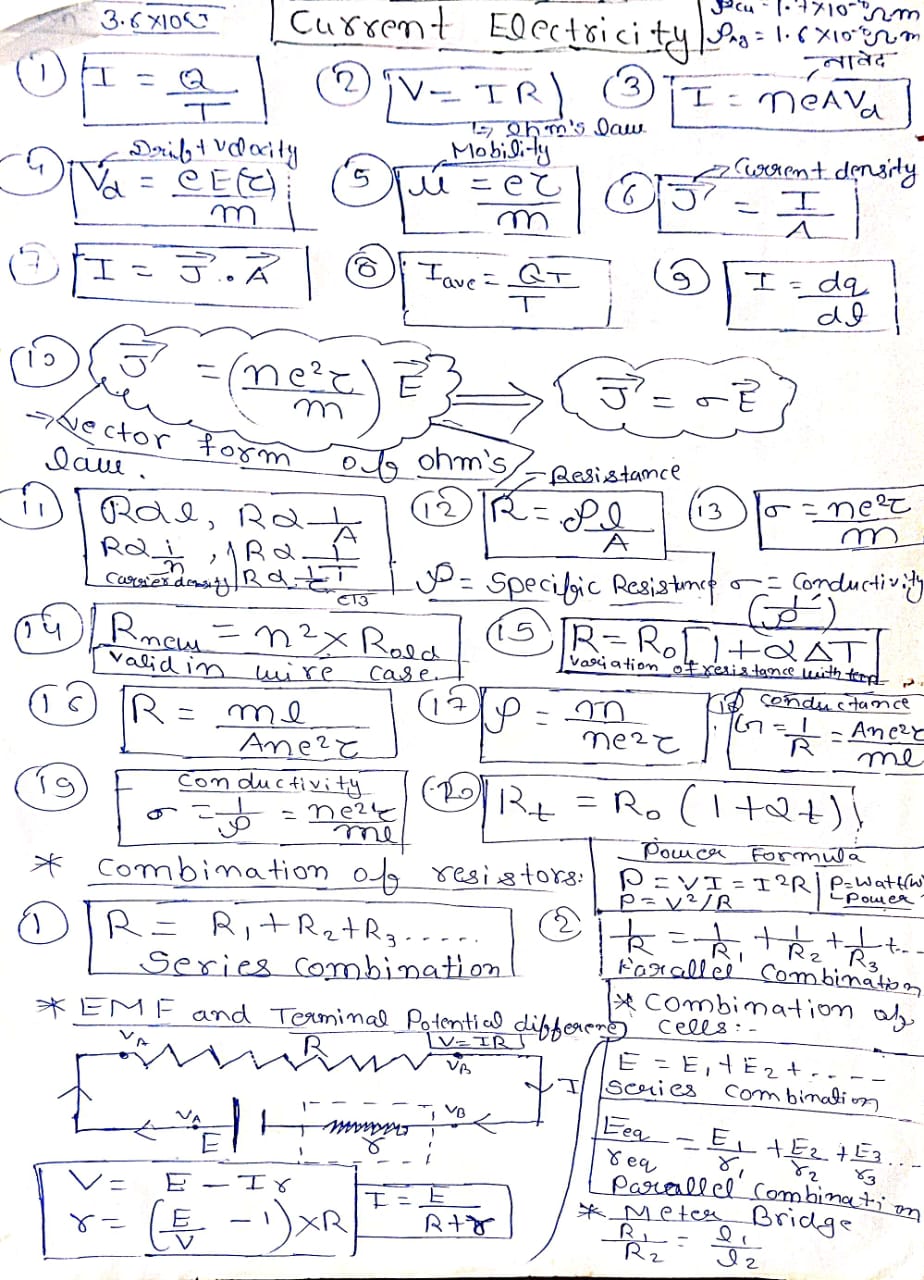 3.6×10⁶J
Current Electricity
ρcu = 1.7×10⁻⁸Ωm
ρAg = 1.6×10⁻⁸Ωm
① I = Q/T
② V = IR
↳ ohm's law
③ I = neAVd
④ Drift velocity
Vd = eE(τ)/m
⑤ Mobility
μ = eτ/m
⑥ → Current density
J⃗ = I/A
⑦ I = J⃗ . A⃗
⑧ Iave = QT/T
⑨ I = dq/dl
⑩ J⃗ = (ne²τ/m) E⃗ ⟹ J⃗ = σE⃗
→ Vector form of ohm's
law.
⑪ Rαl, Rα1/A
Rα1/n, Rα1/τ
Carrier density
⑫ → Resistance
R = ρl/A
ρ = Specific Resistance
⑬ σ = ne²τ/m
σ = Conductivity
(1/ρ)
⑭ Rnew = n² × Rold
Valid in wire case.
⑮ R = R₀[1+αΔT]
Variation of resistance with temp
⑯ R = ml/Ane²τ
⑰ ρ = m/ne²τ
⑱ Conductance
G = 1/R = Ane²τ/ml
⑲ Conductivity
σ = 1/ρ = ne²τ/ml
⑳ Rt = R₀(1+αt)
* Combination of resistors:
① R = R₁+R₂+R₃.....
Series Combination
Power Formula
P = VI = I²R
P = V²/R
P=Watt(W)
Power
② 1/R = 1/R₁ + 1/R₂ + 1/R₃ +...
Parallel Combination
* EMF and Terminal Potential difference
V=IR
VA R VB
I
VA VB
E r
V = E - Ir
r = (E/V - 1)×R
I = E/R+r
* Combination of
cells:-
E = E₁+E₂+.....
Series Combination
Eeq/req = E₁/r₁ + E₂/r₂ + E₃/r₃...
Parallel Combination
* Meter Bridge
R₁/R₂ = l₁/l₂